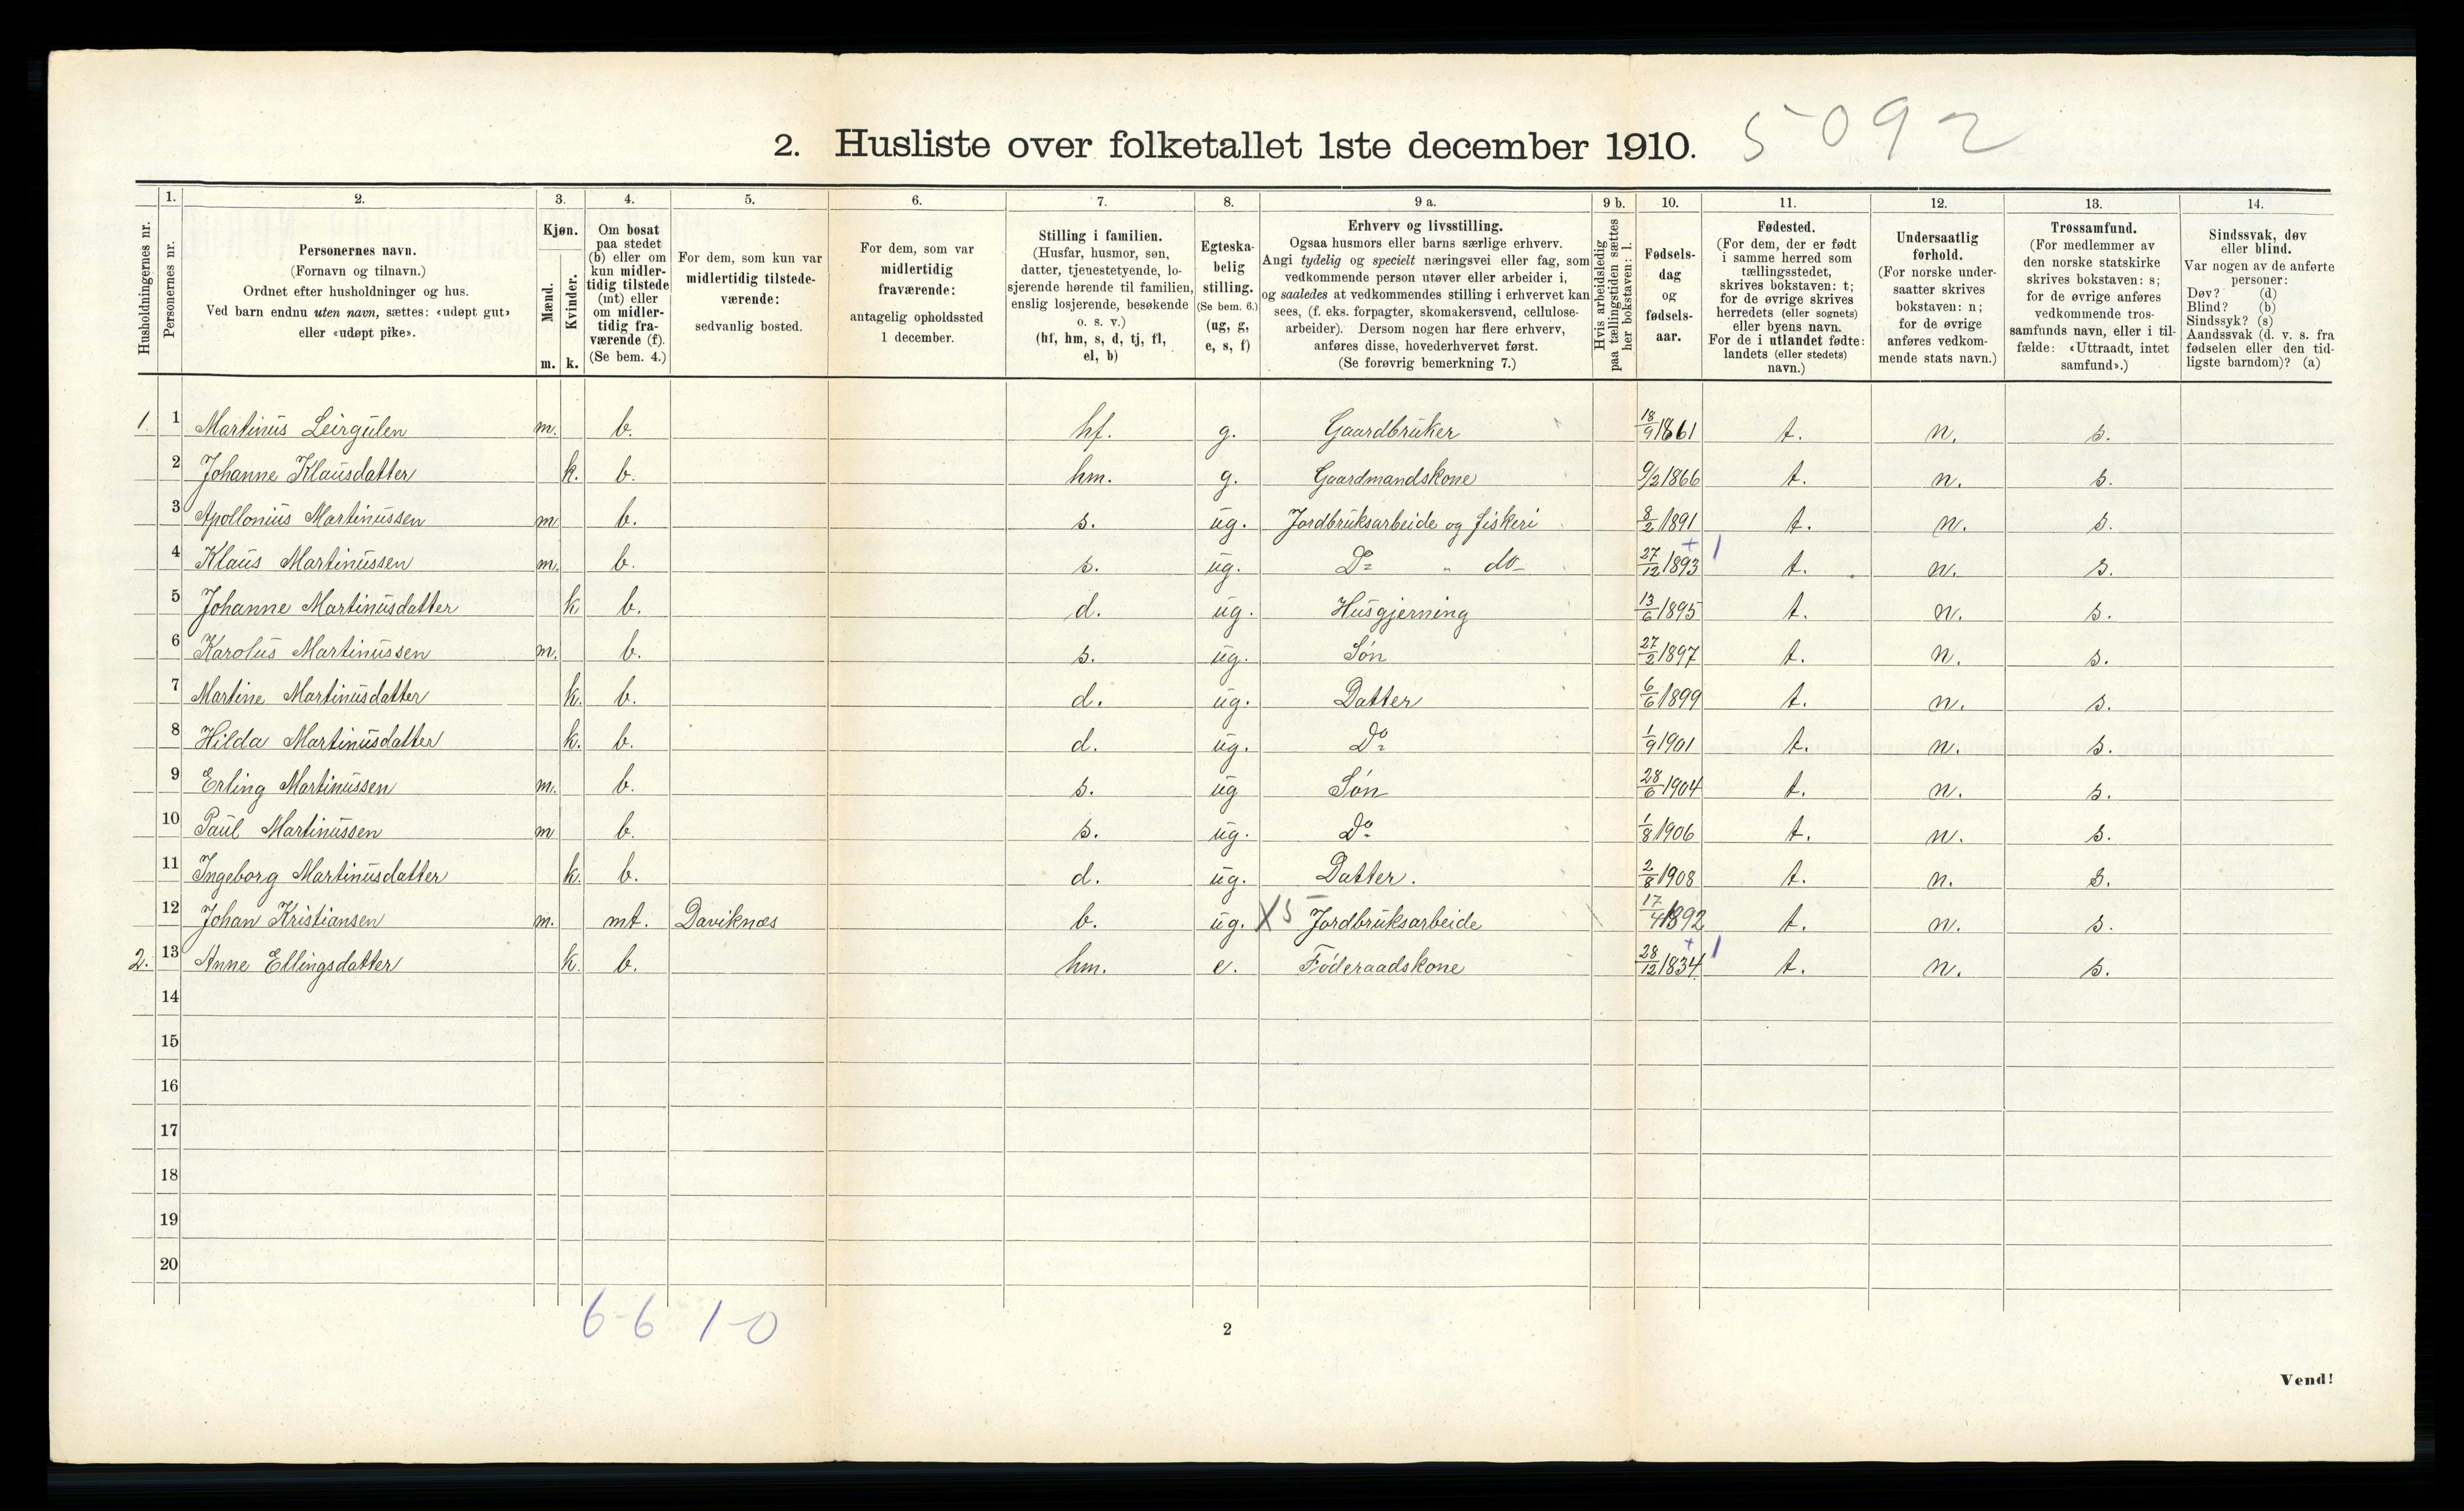 2. Husliste over folketallet 1ste december 1910. 5092
Husholdningernes nr.
1. Personernes nr.
2. Personernes navn. (Fornavn og tilnavn.) Ordnet efter husholdninger og hus. Ved barn endnu uten navn, sættes: «udøpt gut» eller «udøpt pike».
3. Kjøn. Mænd. m. Kvinder. k.
4. Om bosat paa stedet (b) eller om kun midlertidig tilstede (mt) eller om midlertidig fraværende (f). (Se bem. 4.)
5. For dem, som kun var midlertidig tilstedeværende: sedvanlig bosted.
6. For dem, som var midlertidig fraværende: antagelig opholdssted 1 december.
7. Stilling i familien. (Husfar, husmor, søn, datter, tjenestetyende, losjerende hørende til familien, enslig losjerende, besøkende o. s. v.) (hf, hm, s, d, tj, fl, el, b)
8. Egteskabelig stilling. (Se bem. 6.) (ug, g, e, s, f)
9 a. Erhverv og livsstilling. Ogsaa husmors eller barns særlige erhverv. Angi tydelig og specielt næringsvei eller fag, som vedkommende person utøver eller arbeider i, og saaledes at vedkommendes stilling i erhvervet kan sees, (f. eks. forpagter, skomakersvend, cellulosearbeider). Dersom nogen har flere erhverv, anføres disse, hovederhvervet først. (Se forøvrig bemerkning 7.)
9 b. Hvis arbeidsledig paa tællingstiden sættes her bokstaven: l.
10. Fødselsdag og fødselsaar.
11. Fødested. (For dem, der er født i samme herred som tællingsstedet, skrives bokstaven: t; for de øvrige skrives herredets (eller sognets) eller byens navn. For de i utlandet fødte: landets (eller stedets) navn.)
12. Undersaatlig forhold. (For norske undersaatter skrives bokstaven: n; for de øvrige anføres vedkommende stats navn.)
13. Trossamfund. (For medlemmer av den norske statskirke skrives bokstaven: s; for de øvrige anføres vedkommende trossamfunds navn, eller i tilfælde: «Uttraadt, intet samfund».)
14. Sindssvak, døv eller blind. Var nogen av de anførte personer: Døv? (d) Blind? (b) Sindssyk? (s) Aandssvak (d. v. s. fra fødselen eller den tidligste barndom)? (a)
1. 1 Martinus Leirgulen m. b. hf. g. Gaardbruker 18/9 1861 t. n. s.
2 Johanne Klausdatter k. b. hm. g. Gaardmandskone 9/2 1866 t. n. s.
3 Apollonius Martinussen m. b. s. ug. Jordbruksarbeide og fiskeri 8/2 1891 t. n. s.
4 Klaus Martinussen m. b. s. ug. Do " do 27/12 1893 + 1 t. n. s.
5 Johanne Martinusdatter k. b. d. ug. Husgjerning 13/6 1895 t. n. s.
6 Karolus Martinussen m. b. s. ug. Søn 27/2 1897 t. n. s.
7 Martine Martinusdatter k. b. d. ug. Datter 6/6 1899 t. n. s.
8 Hilda Martinusdatter k. b. d. ug. Do 1/9 1901 t. n. s.
9 Erling Martinussen m. b. s. ug Søn 28/6 1904 t. n. s.
10 Paul Martinussen m b. s. ug. Do 1/8 1906 t. n. s.
11 Ingeborg Martinusdatter k. b. d. ug. Datter. 2/8 1908 t. n. s.
12 Johan Kristiansen m. mt. Daviknæs b. ug. X 5 Jordbruksarbeide 17/4 1892 t. n. s.
2. 13 Anne Ellingsdatter k. b. hm. e. Føderaadskone 28/12 1834 + 1 t. n. s.
14
15
16
17
18
19
20
6-6 1-0
2
Vend!